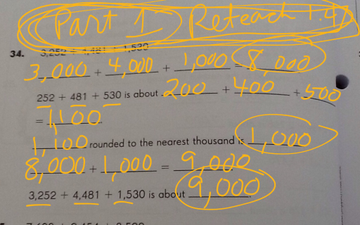 Part 1 Reteach 1.9
34. 3,252 + 4,481 + 1,530
3,000 + 4,000 + 1,000 = 8,000
252 + 481 + 530 is about 200 + 400 + 500
= 1100
1,100 rounded to the nearest thousand is 1,000
8,000 + 1,000 = 9,000
3,252 + 4,481 + 1,530 is about 9,000